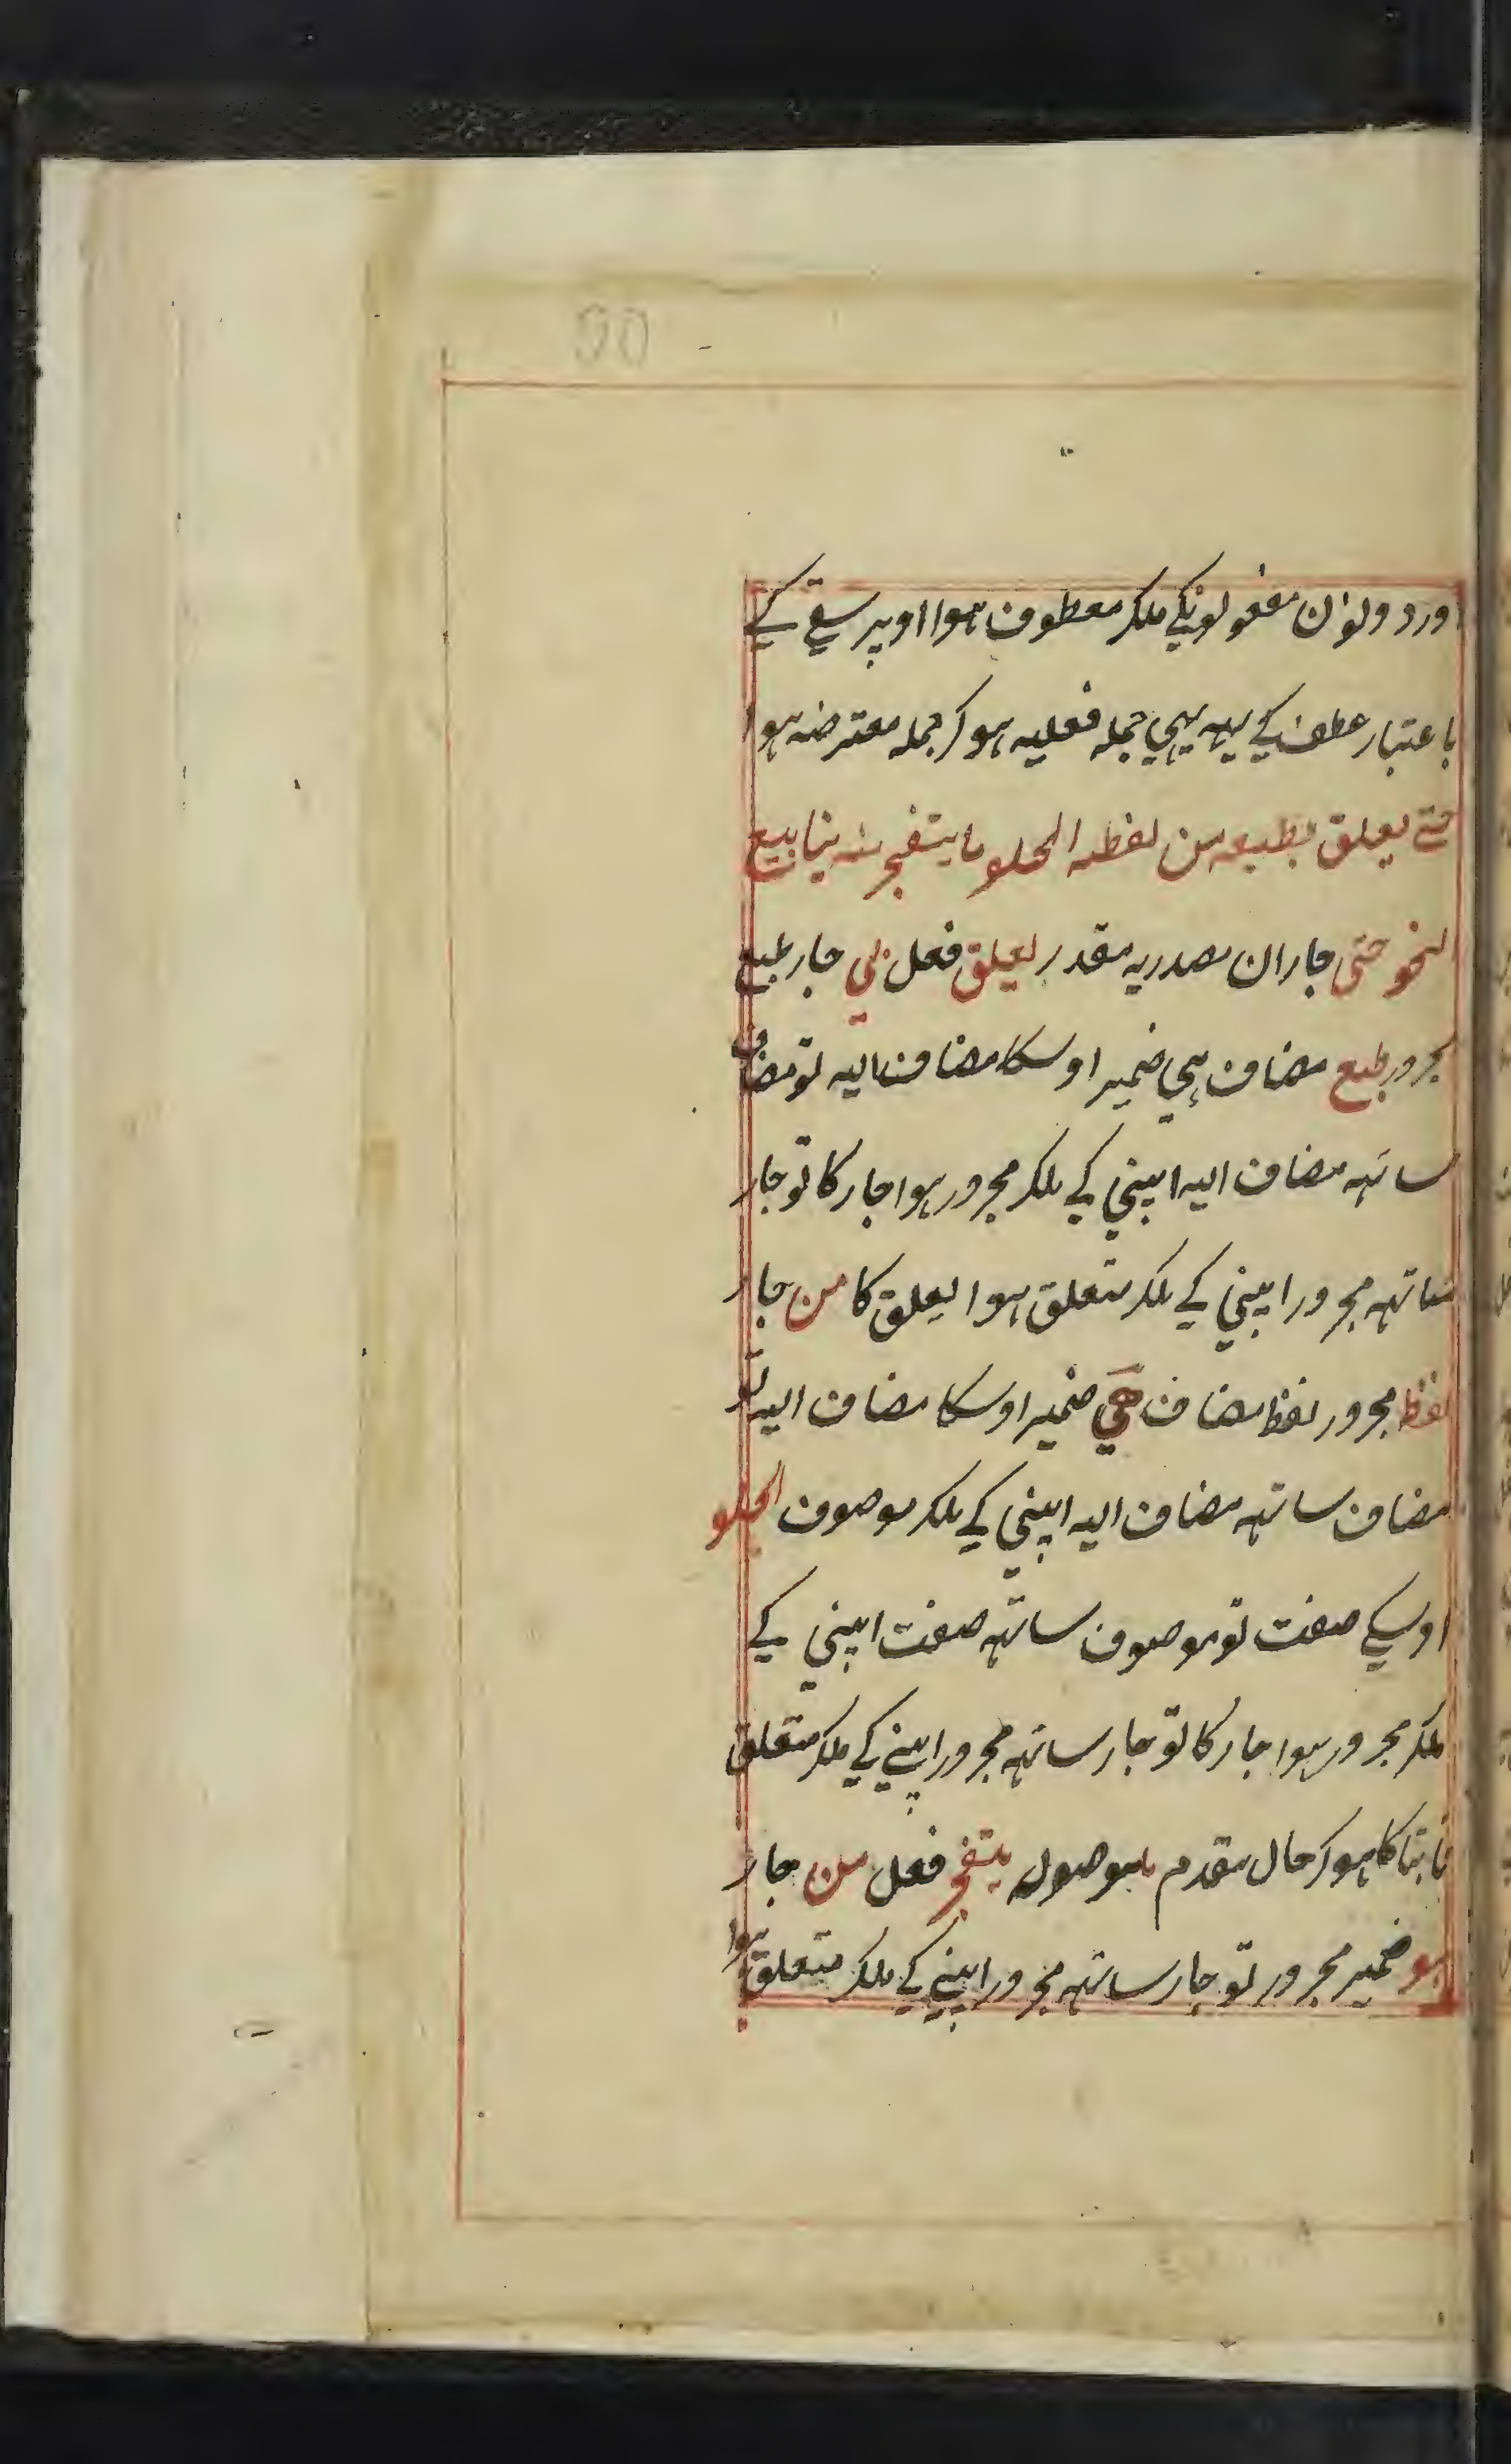 ۵۵
اور دولون مفعولونکے ملکر معطوف ہوا اوپر سقے کے
باعتبار عطف کے یہہ بہی جملہ فعلیہ ہو کر جملہ معترضہ ہوا
حتے یعلق بطبعہ من لفظہ الحلو ما یتفجر منہ ینابیع
النحو حتی جار ان مصدریہ مقدر یعلق فعل بی جار طبع
مجرور طبع مضاف ہی ضمیر اوسکا مضاف الیہ تو مضاف
ساتہہ مضاف الیہ اپنی کے ملکر مجرور ہوا جار کا تو جار
ساتہہ مجرور اپنی کے ملکر متعلق ہوا یعلق کا من جار
لفظ مجرور لفظ مضاف ہی ضمیر اوسکا مضاف الیہ تو
مضاف ساتہہ مضاف الیہ اپنی کے ملکر موصوف الحلو
اوسکے صفت تو موصوف ساتہہ صفت اپنی کے
ملکر مجرور ہوا جار کا تو جار ساتہہ مجرور اپنے کے ملکر متعلق
ثابتا کا ہو کر حال مقدم ما موصولہ یتفجر فعل من جار
ہو ضمیر مجرور تو جار ساتہہ مجرور اپنے کے ملکر متعلق ہوا